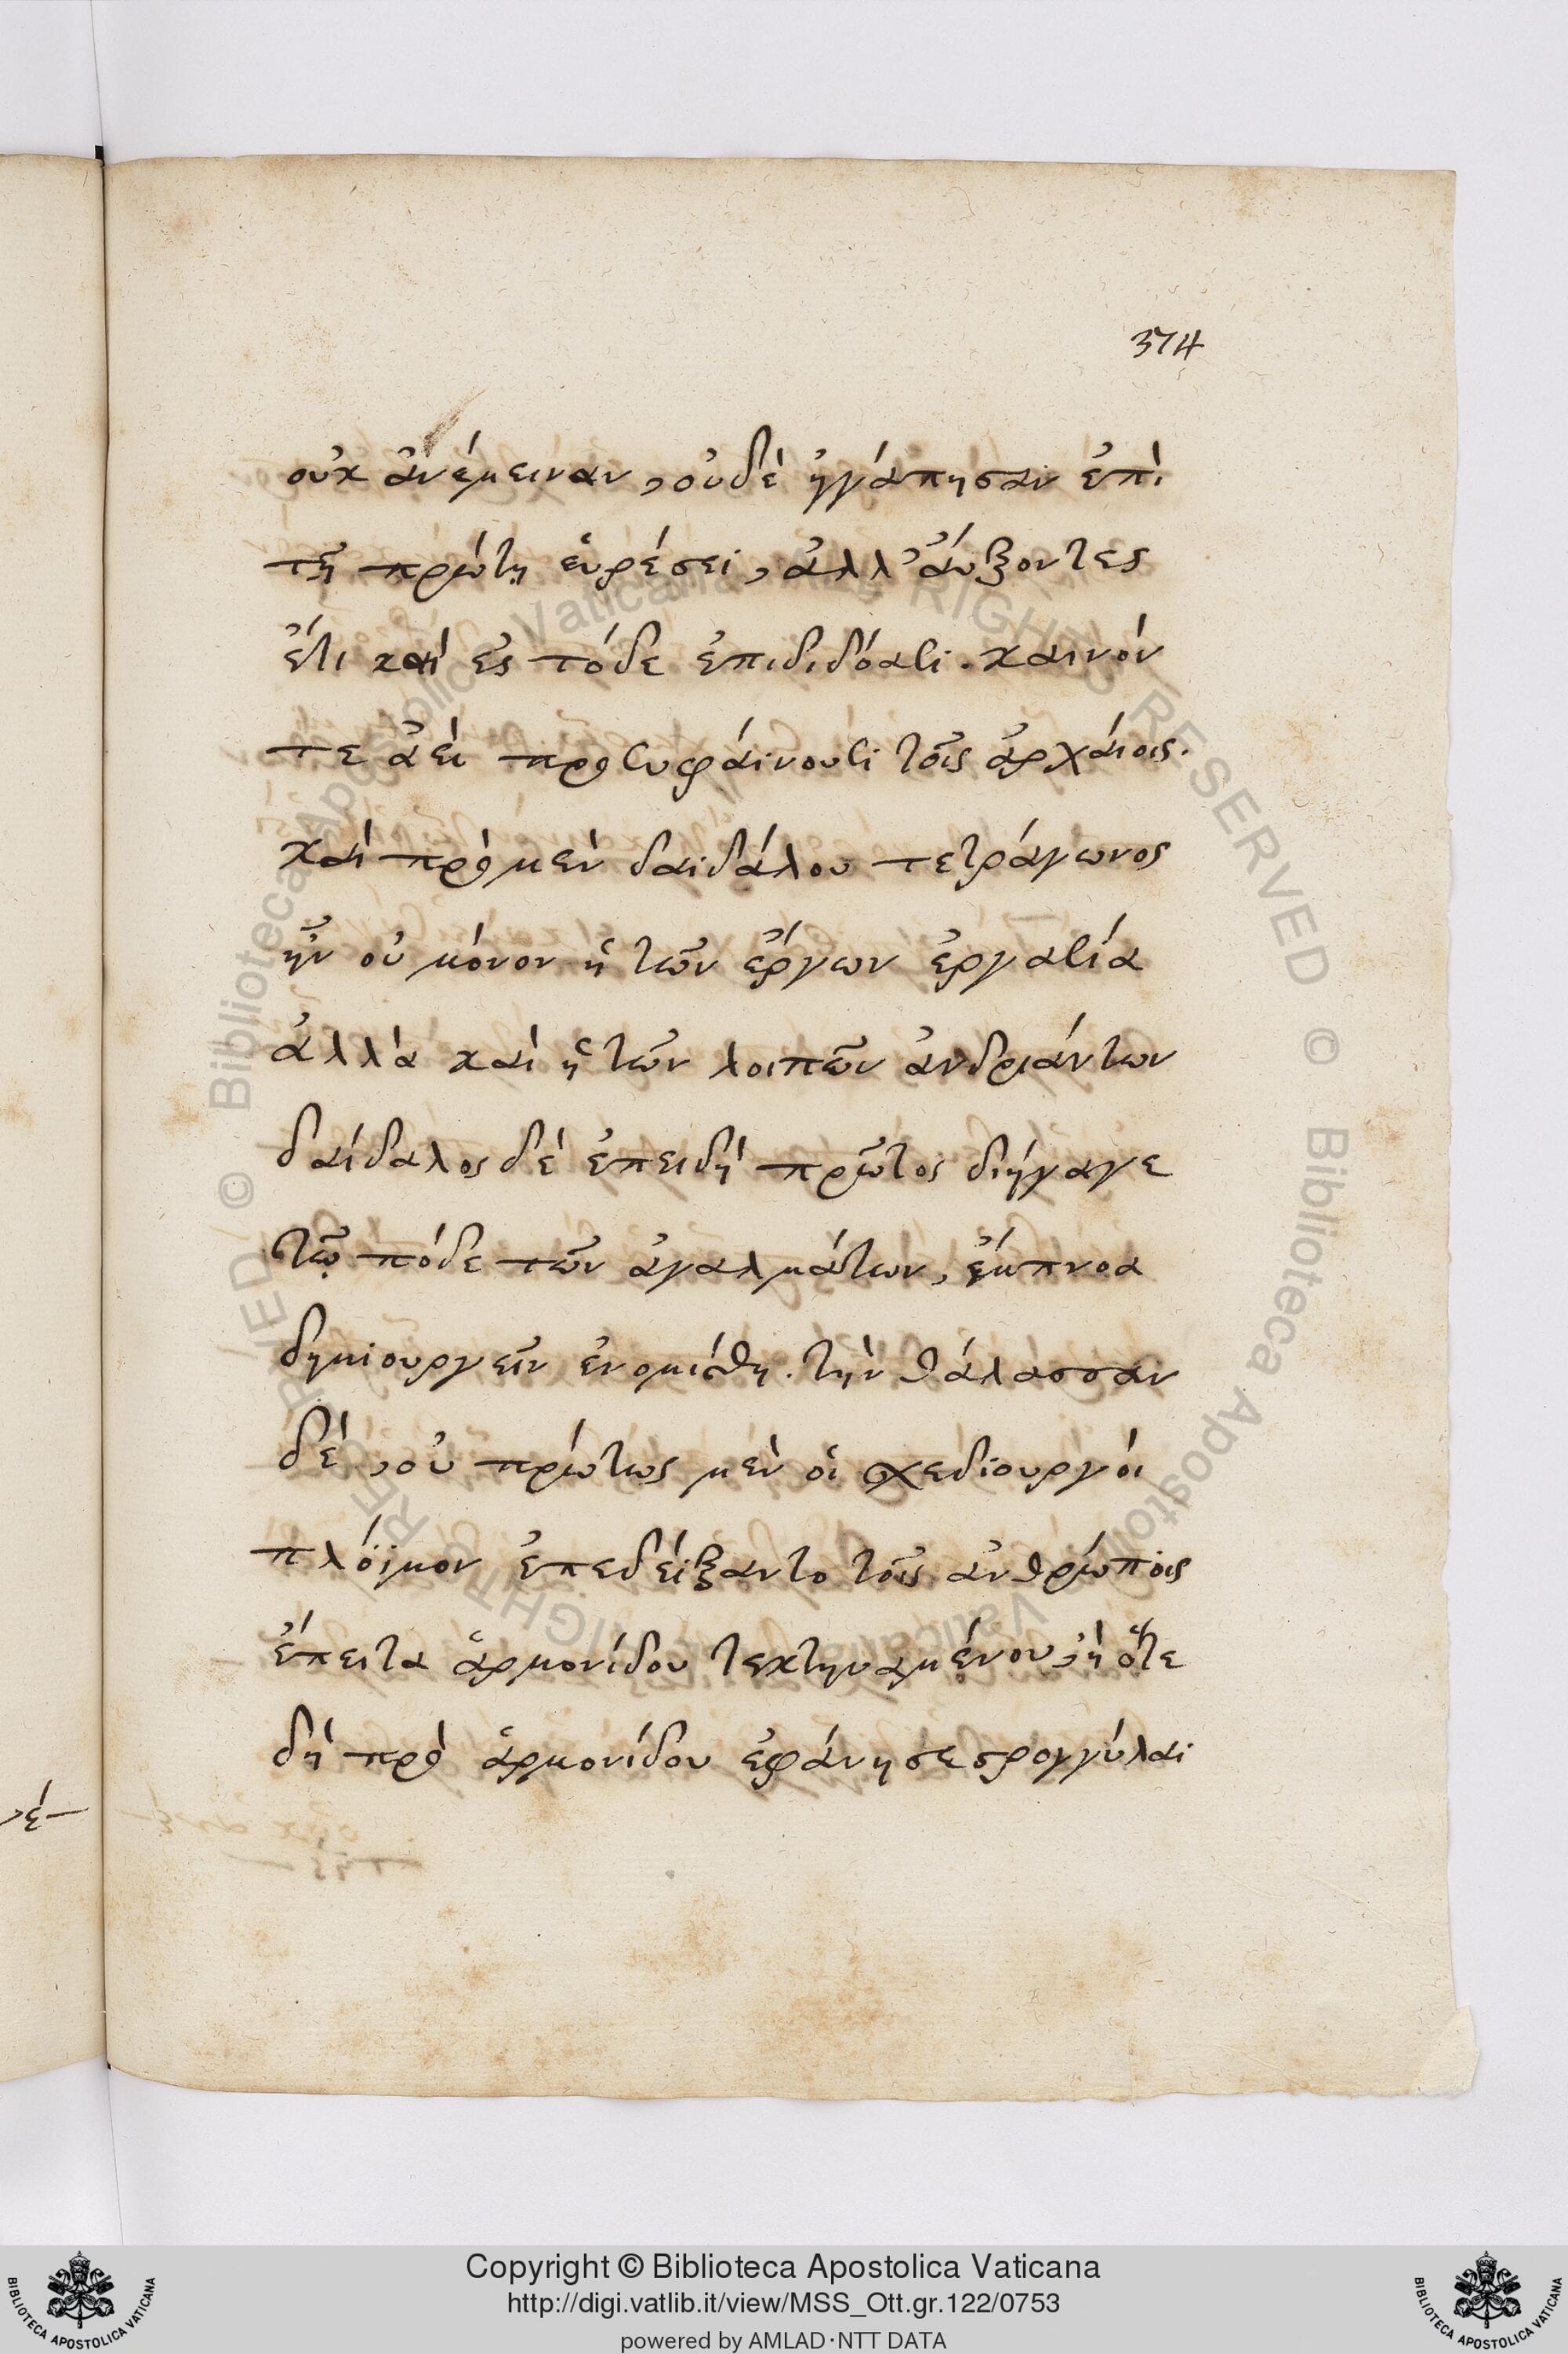 374
οὐκ ἀνέμειναν, οὐδὲ ἠγάπησαν ἐπὶ
τῇ πρώτῃ εὑρέσει, ἀλλ' ἄυξοντες
ἔτι καὶ ἐς τόδε ἐπιδιδόασι. καινόν
τε ἀεὶ προσυφαίνουσι τοῖς ἀρχαίοις.
καὶ πρὸ μὲν δαιδάλου τετράγωνος
ἦν οὐ μόνον ἡ τῶν ἔργων ἐργασία
ἀλλὰ καὶ ἡ τῶν λοιπῶν ἀνδριάντων
δαίδαλος δὲ ἐπειδὴ πρῶτος διήγαγε
τῶ πόδε τῶν ἀγαλμάτων, ἔμπνοα
δημιουργεῖν ἐνομίσθη. τὴν θάλασσαν
δὲ, οὐ πρώτως μὲν οἱ σχεδιουργοὶ
πλόϊμον ἐπεδείξαντο τοῖς ἀνθρώποις
ἔπειτα ἁρμονίδου τεκτηναμένου, ἢ ὅτε
δὴ πρὸ ἁρμονίδου ἐφάνησε στρογγύλαι
Copyright © Biblioteca Apostolica Vaticana
http://digi.vatlib.it/view/MSS_Ott.gr.122/0753
powered by AMLAD·NTT DATA